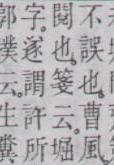 不誤也曹風
閱也箋云堀
字遂謂許所
郭璞云生糞